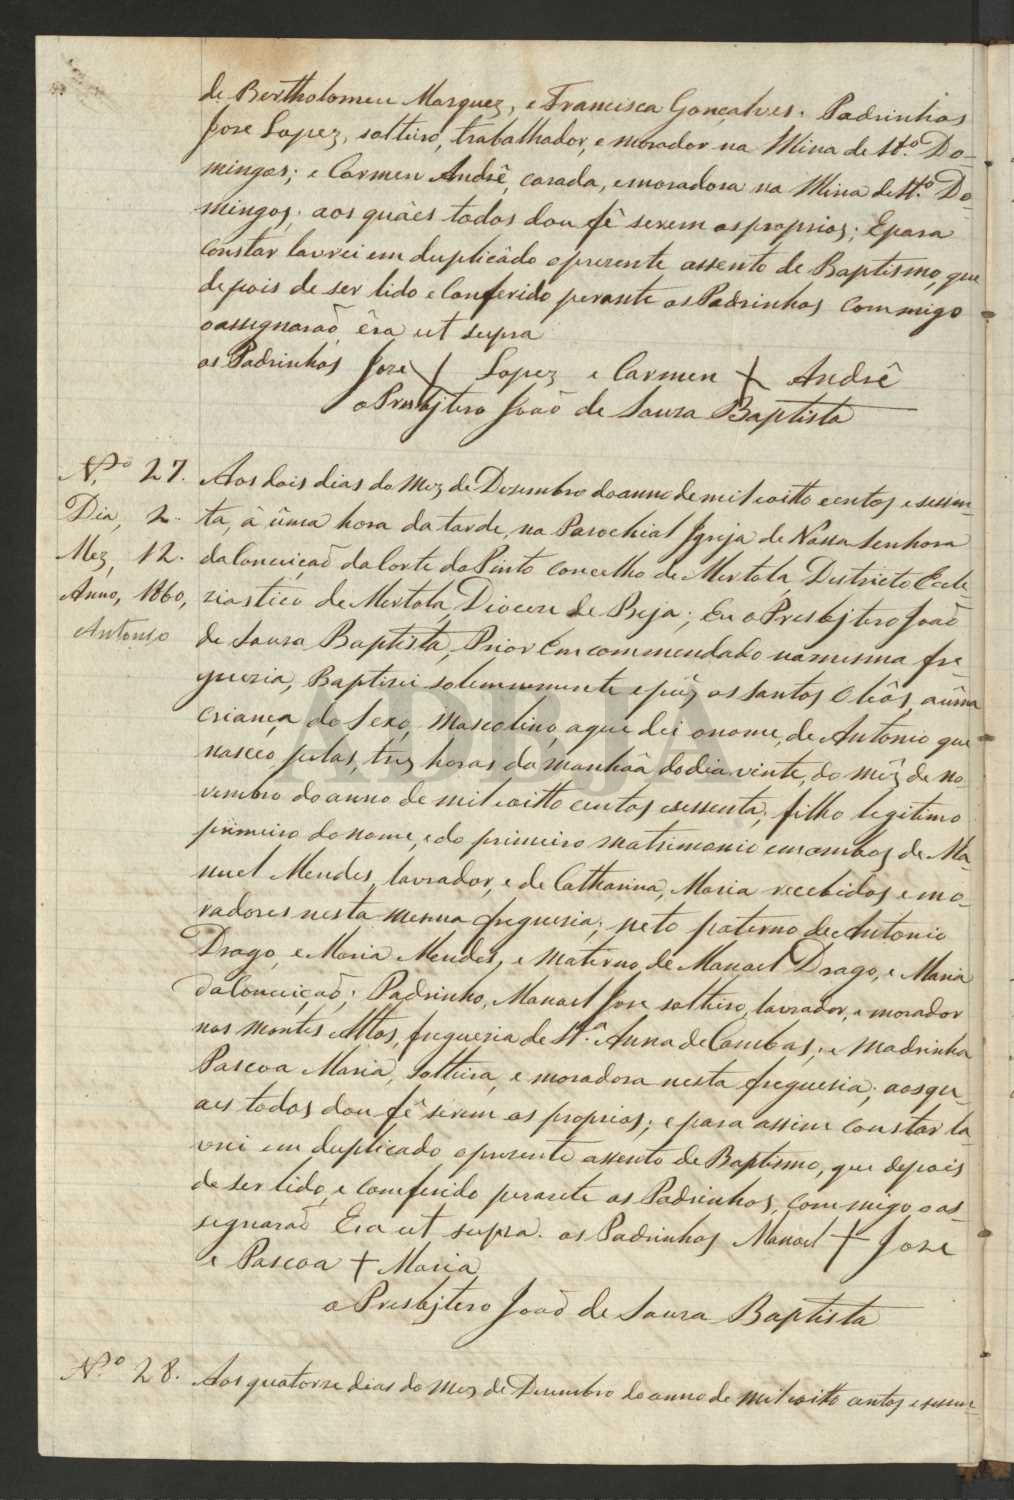 de Bertholomeu Marquez, e Francisca Gonçalves. Padrinhos
Jose Lopez, solteiro, trabalhador, e morador na Mina de Stº. Do-
mingos; e Carmen Andrê, casada, e moradora na Mina de Stº. Do-
mingos; aos quàes todos dou fê serem os proprios; E para
constar lavrei em duplicâdo o presente assento de Baptismo, que
depois de ser lido e conferido perante os Padrinhos commigo
o assignaraõ êra ut supra
os Padrinhos Jose + Lopez e Carmen + Andrê
o Presbjtero Joaõ de Souza Baptista
N.º 27. Aos dois dias do Mez de Dezembro do anno de mil e oitto centos e sessen-
Dia, 2. ta, â ûma hora da tarde, na Parochial Igreja de Nossa Senhora
Mez, 12. da Conceiçaõ da Corte do Pinto concelho de Mertola, Destricto Ecle-
Anno, 1860, ziastico de Mertola, Diocese de Beja; Eu o Presbjtero Joaõ
Antonio de Souza Baptista, Prior Encommendado na mesma fre-
guezia, Baptizei solemnemente e pûz os santos Olêos, a ûma
criança do Sexo, Mascolino, a que dei o nome, de Antonio que
nasceo pelas, trez horas da manhãa do dia vinte, do mêz de no-
vembro do anno de mil e oitto centos e sessenta; filho legitimo
primeiro do nome, e do primeiro matrimonio em ambos de Ma-
nuel Mendes, lavrador, e de Catharina, Maria recebidos e mo-
radores nesta mesma freguezia; neto paterno de Antonio
Drago, e Maria Mendes, e materno de Manoel Drago, e Maria
da Conceiçaõ; Padrinho, Manoel Jose, solteiro, lavrador, e morador
nos Montes Altos, freguezia de Stª. Anna de Cambas; e Madrinha
Pascoa Maria, solteira, e moradora nesta freguezia; aos qu-
aes todos dou fê serem os proprios; e para assim constar la-
vrei em duplicado o presente assento de Baptismo, que depois
de ser lido, e conferido perante os Padrinhos, commigo o as-
signaraõ Era ut supra. os Padrinhos Manoel + Jose
e Pascoa + Maria
o Presbjtero Joaõ de Souza Baptista
N.º 28. Aos quatorze dias do Mez de Dezembro do anno de mil e oitto centos e sessen-
ADBJA